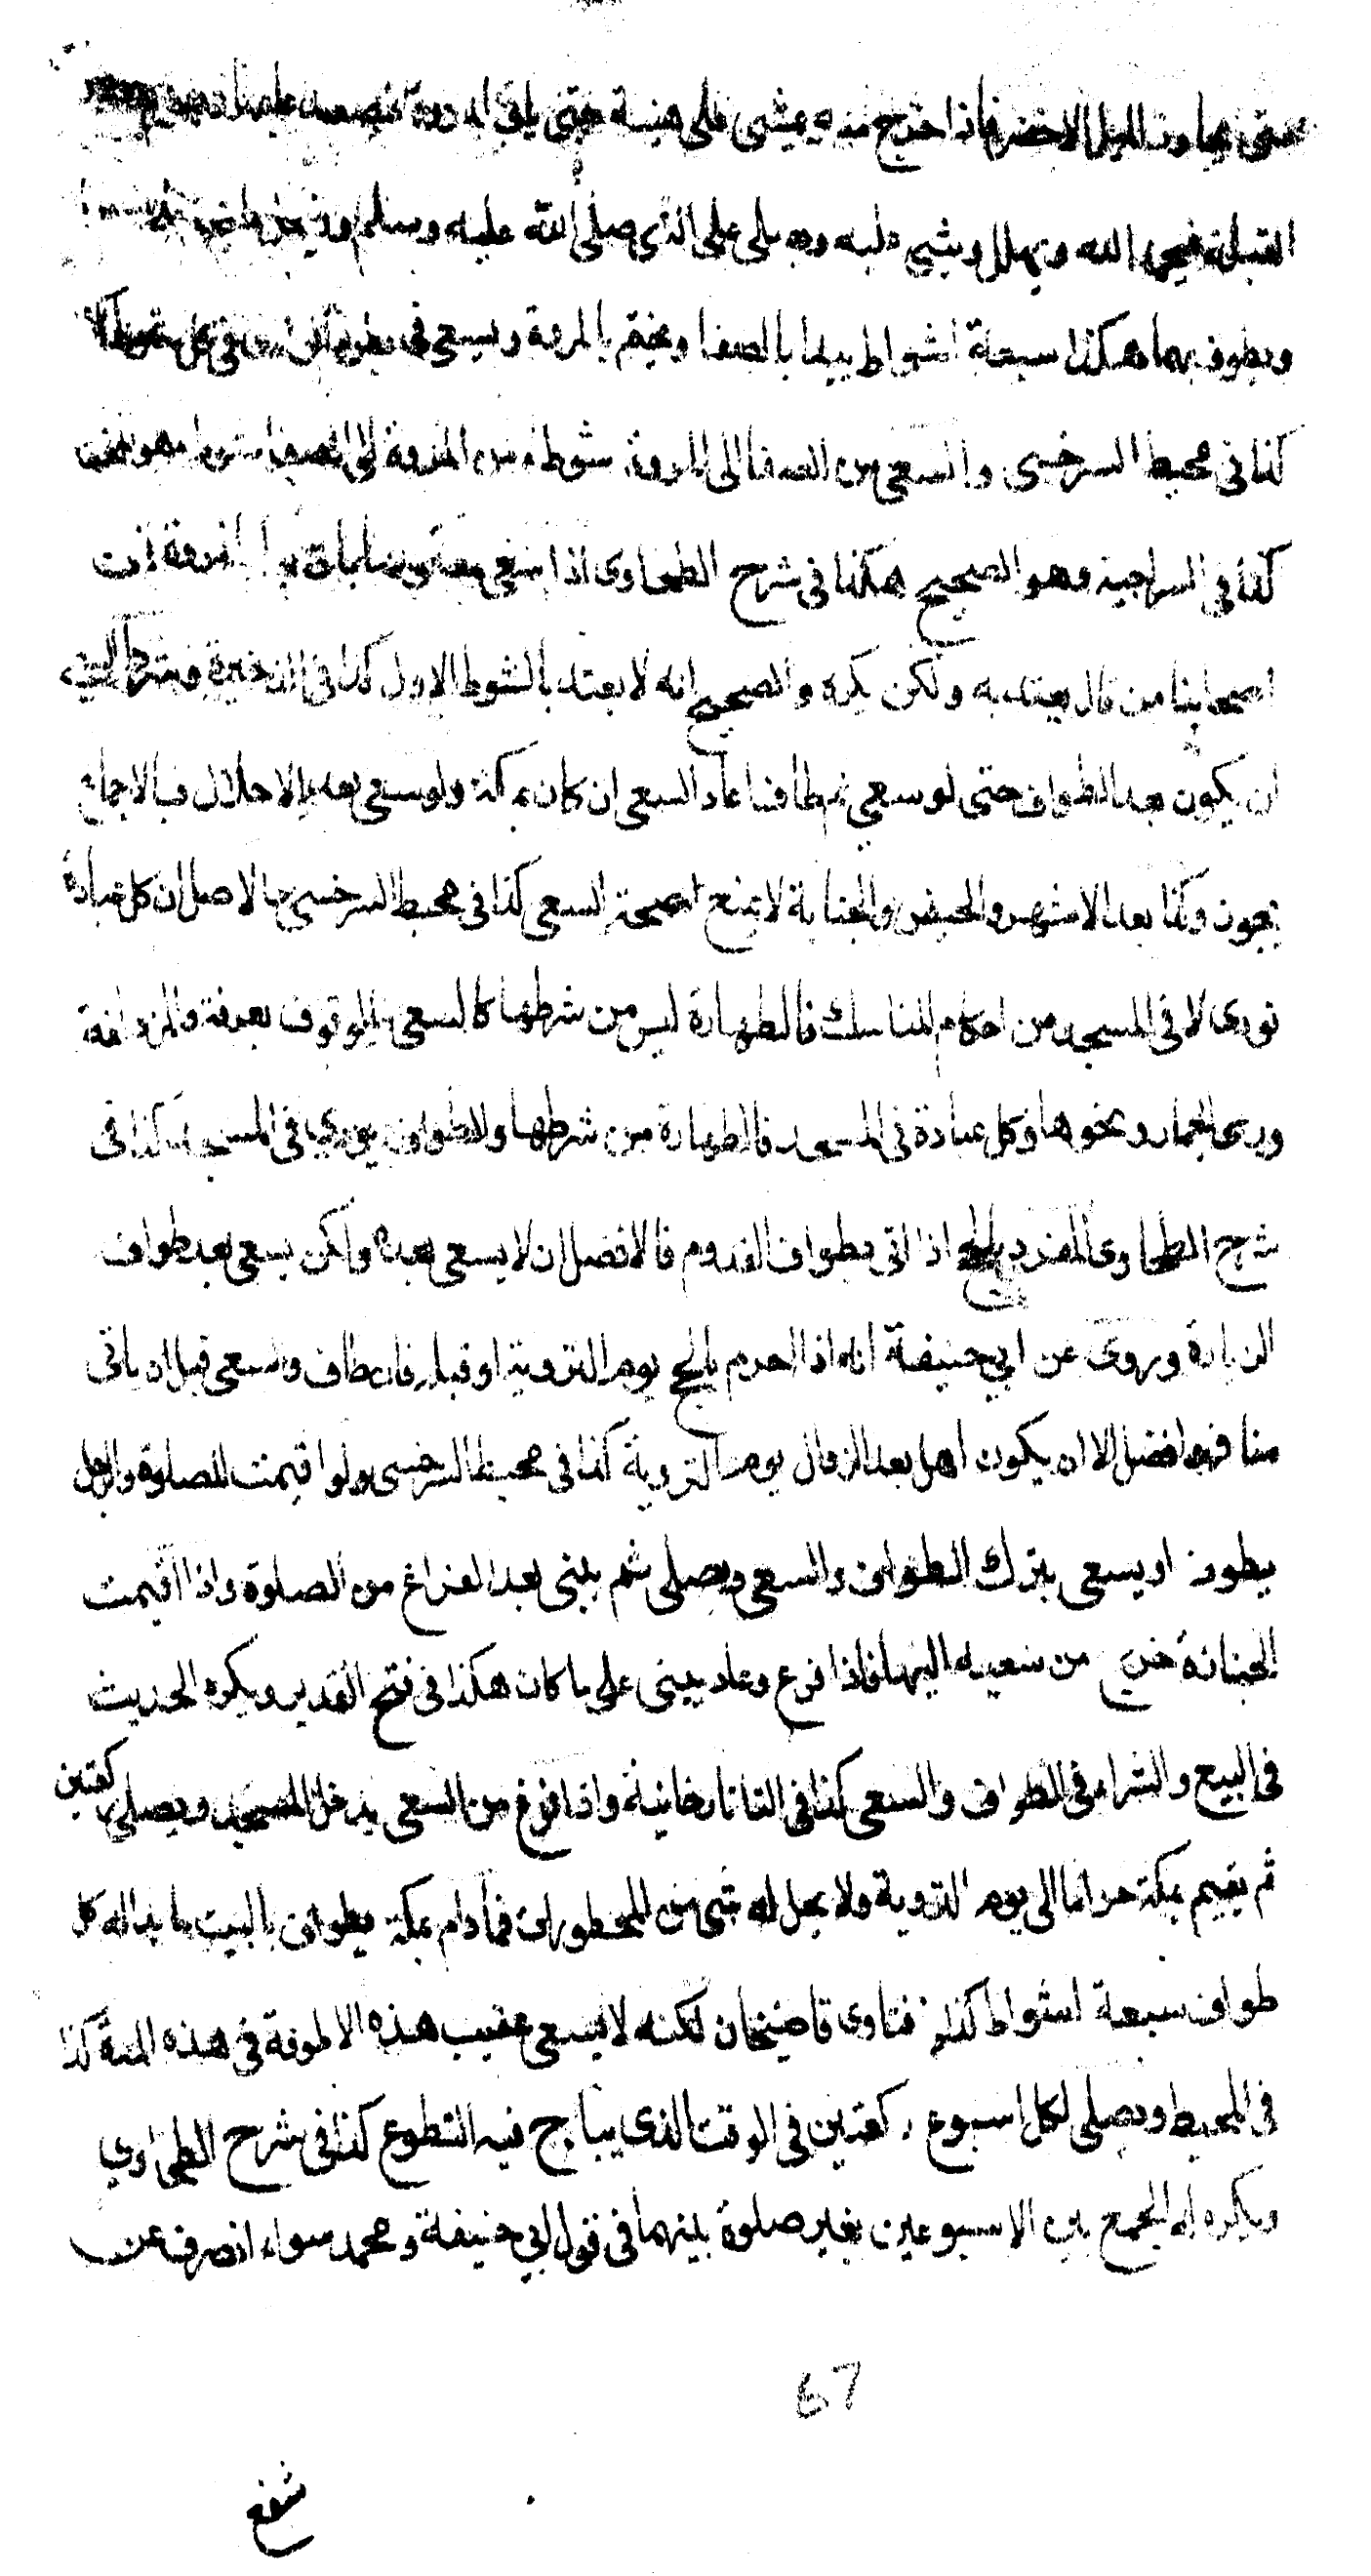 حتى يجاوز الميل الاخضر فاذا خرج منه يمشى على هينة حتى ياتى المروة فيصعد عليها
القبلة فيحمد الله ويهلل ويثنى عليه ويصلى على النبى صلى الله عليه وسلم
ويطوف بهما هكذا سبعة اشواط يبدا بالصفا ويختم بالمروة ويسعى فى بطن الوادى فى كل شوط
كذا فى محيط السرخسى والسعى من الصفا الى المروة شوط ومن المروة الى الصفا شوط وهو
كذا فى السراجية وهو الصحيح هكذا فى شرح الطحاوى اذا سعى
اصحابنا من قال يعتد به ولكن يكره والصحيح انه لا يعتد بالشوط الاول كذا فى الذخيرة وشرط السعى
ان يكون بعد الطواف حتى لو سعى ثم طاف اعاد السعى ان كان بمكة ولو سعى بعد الاحلال فبالاجماع
يجوز وكذا بعد الاشهر والحيض والجنابة لا يمنع لصحة السعى كذا فى محيط السرخسى والاصل ان كل عبادة
تودى لا فى المسجد من احكام المناسك فالطهارة ليس من شرطها كالسعى والوقوف بعرفة والمزدلفة
ورمى الجمار ونحوها وكل عبادة فى المسجد فالطهارة من شرطها والطواف يودى فى المسجد هكذا فى
شرح الطحاوى المفرد بالحج اذا اتى بطواف القدوم فالافضل ان لا يسعى بعده ولكن يسعى بعد طواف
الزيارة وروى عن ابى حنيفة انه اذا احرم بالحج يوم التروية او قبله فان طاف وسعى قبل ان ياتى
منا فهو افضل الا ان يكون اهل بعد الزوال يوم التروية كذا فى محيط السرخسى ولو اقيمت الصلوة والرجل
يطوف او يسعى يترك الطواف والسعى ويصلى ثم يبنى بعد الفراغ من الصلوة واذا اقيمت
الجنازة خرج من سعيه اليها فاذا فرغ وعاد يبنى على ما كان هكذا فى فتح القدير ويكره الحديث
فى البيع والشراء فى الطواف والسعى كذا فى التاتارخانية واذا فرغ من السعى يدخل المسجد ويصلى ركعتين
ثم يقيم بمكة حراما الى يوم التروية ولا يحل له شى من المحظورات فما دام بمكة يطوف بالبيت ما بدا له كل
طواف سبعة اشواط كذا فى فتاوى قاضيخان لكنه لا يسعى عقيب هذه الاطوفة فى هذه المدة كذا
فى المحيط ويصلى لكل اسبوع ركعتين فى الوقت الذى يباح فيه التطوع كذا فى شرح الطحاوي
ويكره له الجمع بين الاسبوعين بغير صلوة بينهما فى قول ابى حنيفة ومحمد سواء انصرف عن
67
شفع